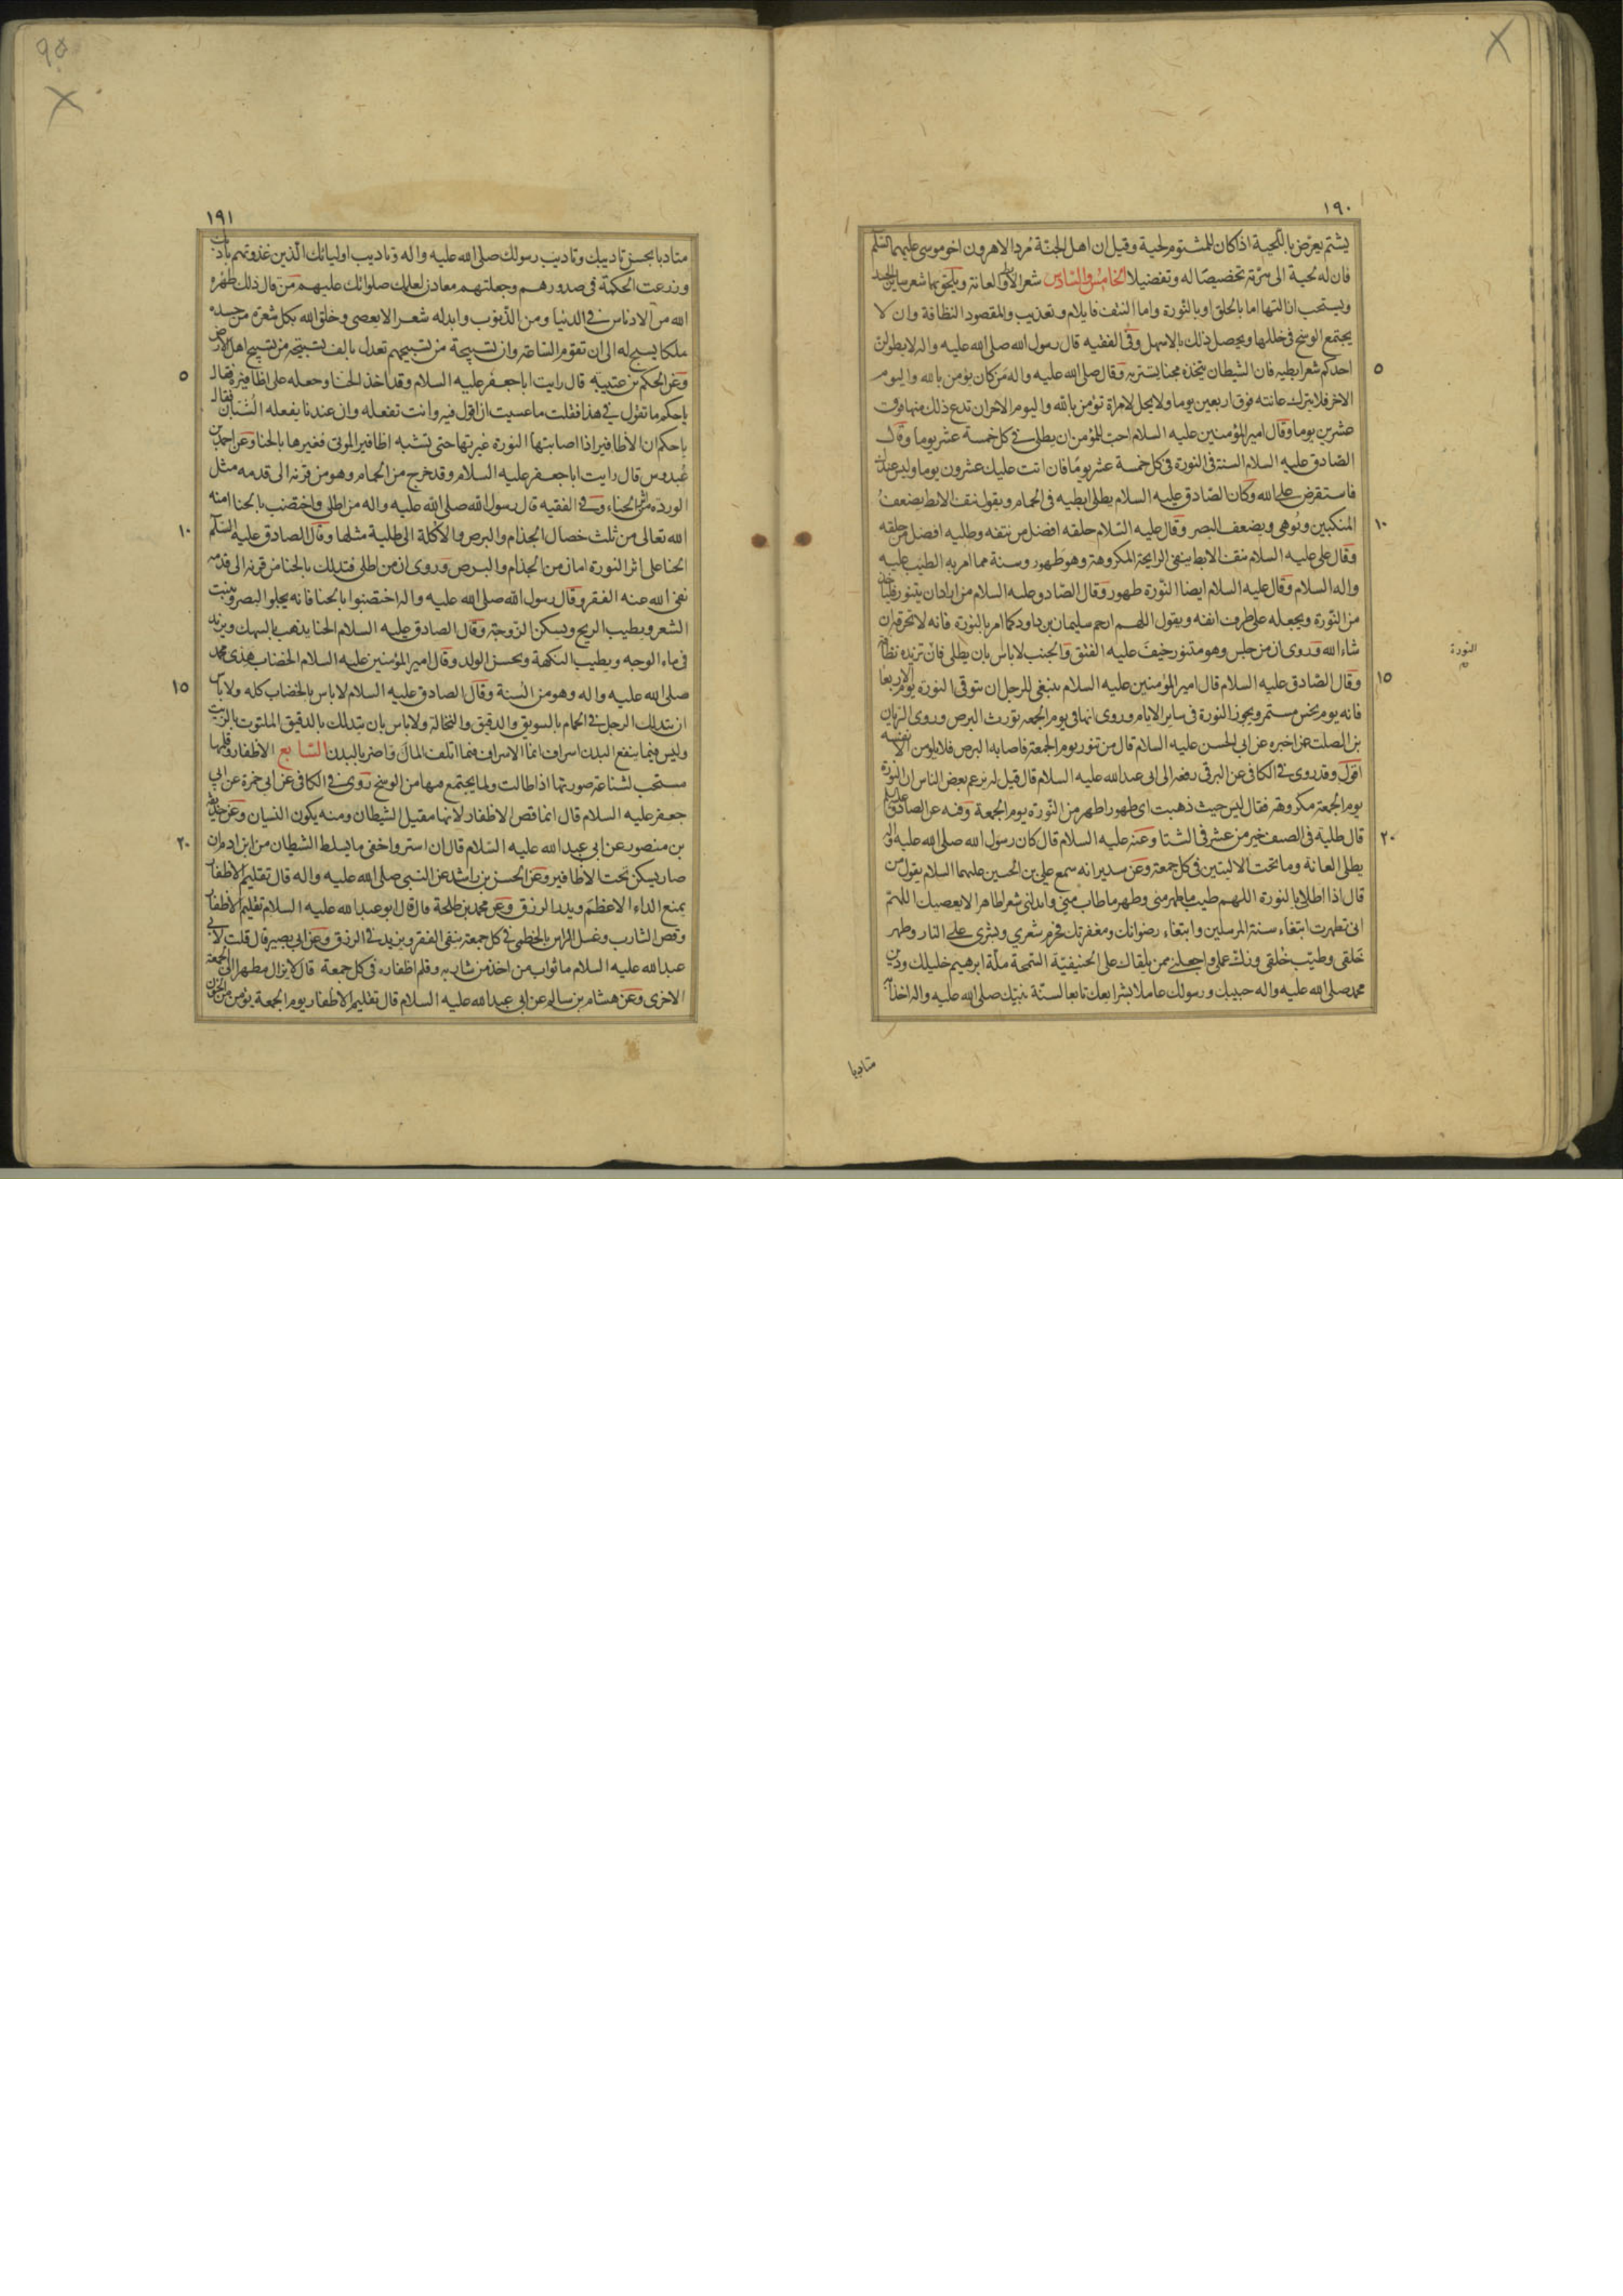 ١٩٠
يشتم يعرض باللحية اذا كان للمشتوم لحية وقيل ان اهل الجنة مرد الا هرون اخو موسى عليهما السلم
فان له لحية الى سرته تخصيصا له وتفضيلا الخامس والسادس شعر الابط والعانة ويلحق بها شعر ساير الجسد
ويستحب ازالتها اما بالحلق او بالنورة واما النتف فايلام وتعذيب والمقصود النظافة وان لا
يجتمع الوسخ في خللها ويحصل ذلك بالاسهل وفى الفقيه قال رسول الله صلى الله عليه واله لا يطولن
٥
احدكم شعر ابطيه فان الشيطان يتخذه مجنا يستتر به وقال صلى الله عليه واله من كان يؤمن بالله واليوم
الاخر فلا يترك عانته فوق اربعين يوما ولا يحل لامراة تؤمن بالله واليوم الاخر ان تدع ذلك منها فوق
عشرين يوما وقال امير المؤمنين عليه السلام احب للمؤمن ان يطلى في كل خمسة عشر يوما وقال
الصادق عليه السلام السنة فى النورة فى كل خمسة عشر يوما فان اتت عليك عشرون يوما وليس عندك
فاستقرض على الله وكان الصادق عليه السلام يطلى ابطيه فى الحمام ويقول نتف الابط يضعف
١٠
المنكبين ويوهى ويضعف البصر وقال عليه السلام حلقه افضل من نتفه وطليه افضل من حلقه
وقال على عليه السلام نتف الابط ينفى الرايحة المكروهة وهو طهور وسنة مما امر به الطيب عليه
واله السلام وقال عليه السلام ايضا النورة طهور وقال الصادق عليه السلام من اراد ان يتنور فلياخذ
من النورة ويجعله على طرف انفه ويقول اللهم ارحم سليمان بن داود كما امر بالنورة فانه لا تحرقه ان
النورة
شاء الله وروى ان من جلس وهو متنور خيف عليه الفتق والجنب لا باس بان يطلى فان تزيده نظافة
١٥
وقال الصادق عليه السلام قال امير المؤمنين عليه السلام ينبغى للرجل ان يتوقى النورة يوم الاربعا
فانه يوم نحس مستمر ويجوز النورة فى ساير الايام وروى انها فى يوم الجمعه تورث البرص وروى الريان
بن الصلت عمن اخبره عن ابى الحسن عليه السلام قال من تنور يوم الجمعة فاصابه البرص فلا يلومن الا نفسه
اقول وقد روى في الكافى عن البرقى رفعه الى ابى عبدالله عليه السلام قال قيل له يزعم بعض الناس ان النورة
يوم الجمعة مكروهة فقال ليس حيث ذهبت اى طهور اطهر من النورة يوم الجمعة وفيه عن الصادق عليه السلم
٢٠
قال طلية فى الصيف خير من عشر فى الشتا وعنه عليه السلام قال كان رسول الله صلى الله عليه واله
يطلى العانة وما تحت الاليتين فى كل جمعة وعن سدير انه سمع على بن الحسين عليهما السلام يقول من
قال اذا اطلى بالنورة اللهم طيب ما طهر منى وطهر ما طاب منى وابدلنى شعرا طاهرا لا يعصيك اللهم
انى تطهرت ابتغاء سنة المرسلين وابتغاء رضوانك ومغفرتك فحرم شعري وبشرى على النار وطهر
خلقى وطيب خلقى وزك عملى واجعلنى ممن يلقاك على الحنيفية السمحة ملة ابرهيم خليلك ودين
محمد صلى الله عليه واله حبيبك ورسولك عاملا بشرايعك تابعا لسنة نبيك صلى الله عليه واله اخذا به
متادبا
١٩١
متادبا بحسن تاديبك وتاديب رسولك صلى الله عليه واله وتاديب اوليائك الذين غذوتهم بادبك
وزرعت الحكمة فى صدورهم وجعلتهم معادن لعلمك صلواتك عليهم من قال ذلك طهره
الله من الادناس في الدنيا ومن الذنوب وابدله شعرا لا يعصى وخلق الله بكل شعرة من جسده
ملكا يسبح له الى ان تقوم الساعة وان تسبيحة من تسبيحهم تعدل بالف تسبيحة من تسبيح اهل الارض
٥
وعن الحكم بن عتيبه قال رايت ابا جعفر عليه السلام وقد اخذ الحنا وجعله على اظافيره فقال
يا حكم ما تقول في هذا فقلت ما عسيت ان اقول فيه وانت تفعله وان عندنا يفعله الشبان فقال
يا حكم ان الاظافير اذا اصابتها النورة غيرتها حتى تشبه اظافير الموتى فغيرها بالحنا وعن احمد بن
عبدوس قال رايت ابا جعفر عليه السلام وقد خرج من الحمام وهو من قرنه الى قدمه مثل
الوردة من اثر الحناء وفي الفقيه قال رسول الله صلى الله عليه واله من اطلى واختضب بالحنا امنه
١٠
الله تعالى من ثلث خصال الجذام والبرص والاكلة الى طلية مثلها وقال الصادق عليه السلم
الحنا على اثر النورة امان من الجذام والبرص وروى ان من اطلى فتدلك بالحنا من قرنه الى قدمه
نفى الله عنه الفقر وقال رسول الله صلى الله عليه واله اختضبوا بالحنا فانه يجلو البصر وينبت
الشعر ويطيب الريح ويسكن الزوجة وقال الصادق عليه السلام الحنا يذهب بالسهك ويزيد
فى ماء الوجه ويطيب النكهة ويحسن الولد وقال امير المؤمنين عليه السلام الخضاب هدى محمد
١٥
صلى الله عليه واله وهو من السنة وقال الصادق عليه السلام لا باس بالخضاب كله ولا باس
ان يتدلك الرجل في الحمام بالسويق والدقيق والنخالة ولا باس بان يتدلك بالدقيق الملتوت بالزيت
وليس فيما ينفع البدن اسراف انما الاسراف فيما اتلف المال واضر بالبدن السابع الاظفار وقلمها
مستحب لشناعة صورتها اذا طالت ولما يجتمع فيها من الوسخ روى في الكافى عن ابى حمزة عن ابى
جعفر عليه السلام قال انما قص الاظفار لانها مقيل الشيطان ومنه يكون النسيان وعن حذيفة
٢٠
بن منصور عن ابى عبد الله عليه السلام قال ان استر واخفى ما يسلط الشيطان من ابن ادم ان
صار يسكن تحت الاظافير وعن الحسن بن راشد عن النبى صلى الله عليه واله قال تقليم الاظفار
يمنع الداء الاعظم ويدر الرزق وعن محمد بن طلحة قال قال ابو عبدالله عليه السلام تقليم الاظفار
وقص الشارب وغسل الراس بالخطمى في كل جمعة ينفى الفقر ويزيد في الرزق وعن ابى بصير قال قلت لابى
عبدالله عليه السلام ما ثواب من اخذ من شاربه وقلم اظفاره فى كل جمعة قال لا يزال مطهرا الى الجمعة
الاخرى وعن هشام بن سالم عن ابى عبدالله عليه السلام قال تقليم الاظفار يوم الجمعة يؤمن من الجذام